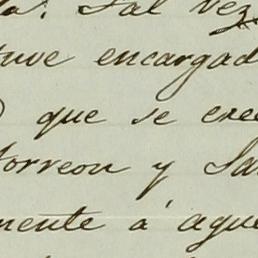 la. Tal vez
tuve encargad
que se cree
Torreon y Sa
mente á aque